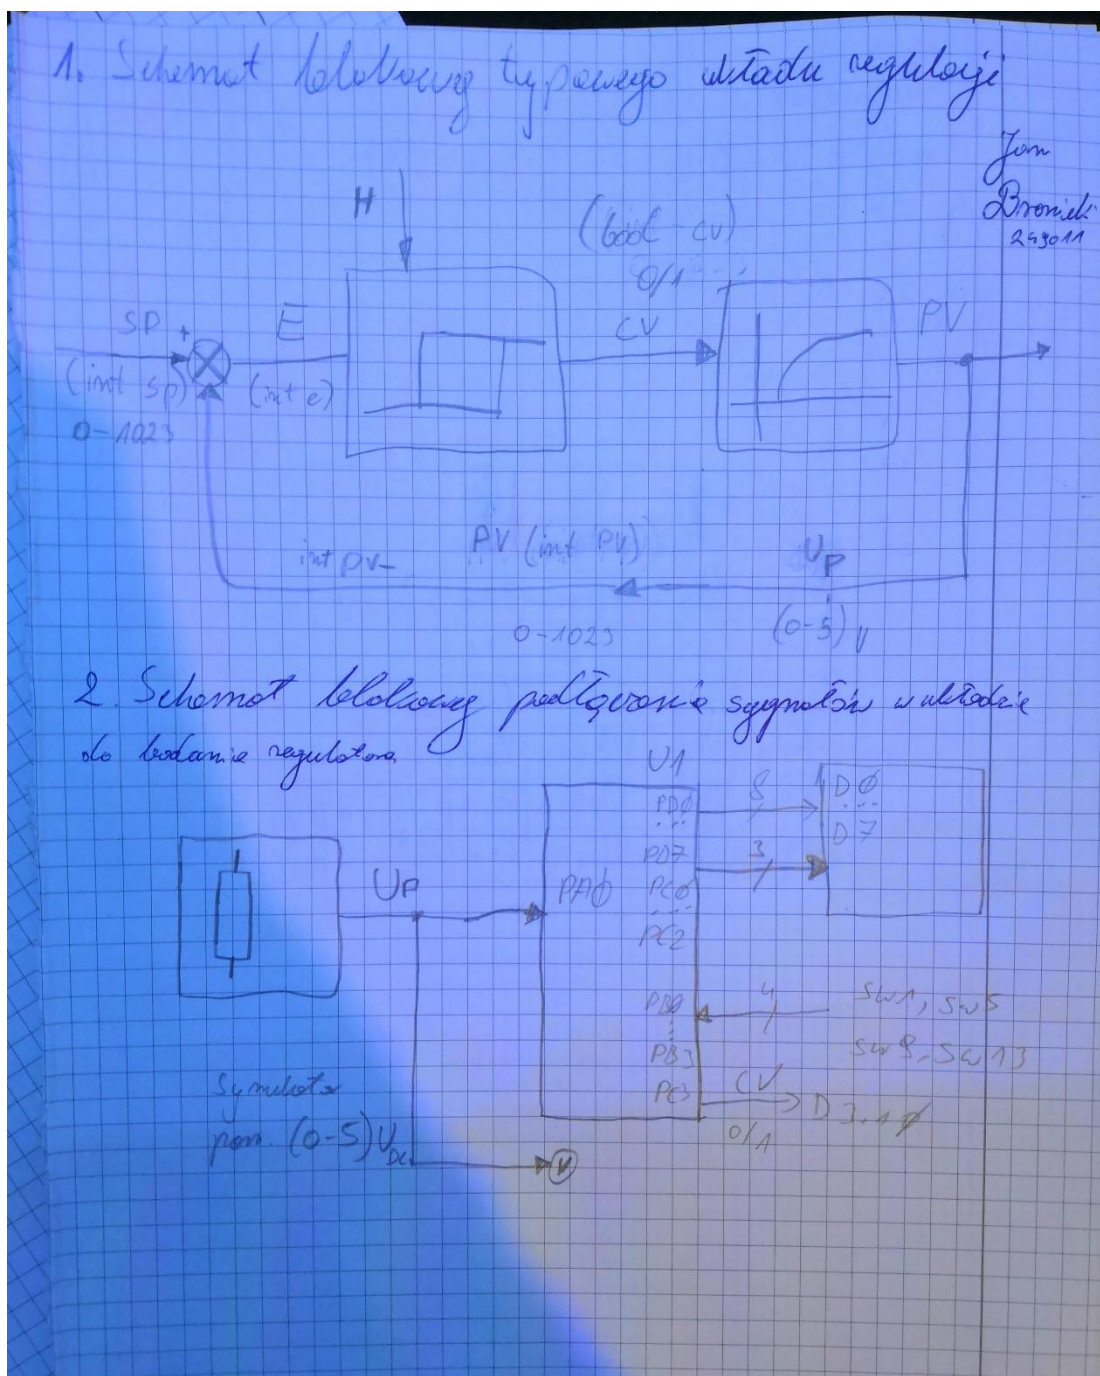 1. Schemat blokowy typowego układu regulacji
Jan
Broniek
249011
H
(bool cv)
0/1
SP +
E
CV
PV
(int sp)
(int e)
0-1023
int pv -
PV (int PV)
Up
0-1023
(0-5) V
2. Schemat blokowy podłączenia sygnałów w układzie
do badania regulatora
U1
PD0
...
PD7
PC0
...
PC2
8
3
D0
...
D7
Up
PA0
PB0
PB3
PC3
4
SW1, SW5
SW9, SW13
CV
0/1
Symulator
pom. (0-5) UDC
V